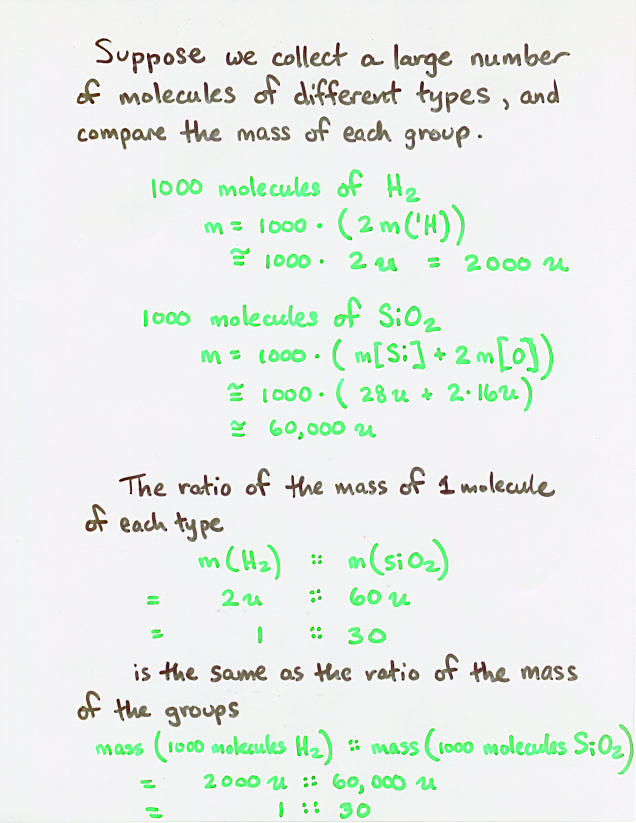 Suppose we collect a large number
of molecules of different types, and
compare the mass of each group.
1000 molecules of H₂
m = 1000 · (2 m(¹H))
≅ 1000 · 2 u = 2000 u
1000 molecules of SiO₂
m = 1000 · (m[Si] + 2 m[O])
≅ 1000 · (28 u + 2·16u)
≅ 60,000 u
The ratio of the mass of 1 molecule
of each type
m(H₂) :: m(SiO₂)
= 2u :: 60 u
= 1 :: 30
is the same as the ratio of the mass
of the groups
mass (1000 molecules H₂) :: mass (1000 molecules SiO₂)
= 2000 u :: 60,000 u
= 1 :: 30